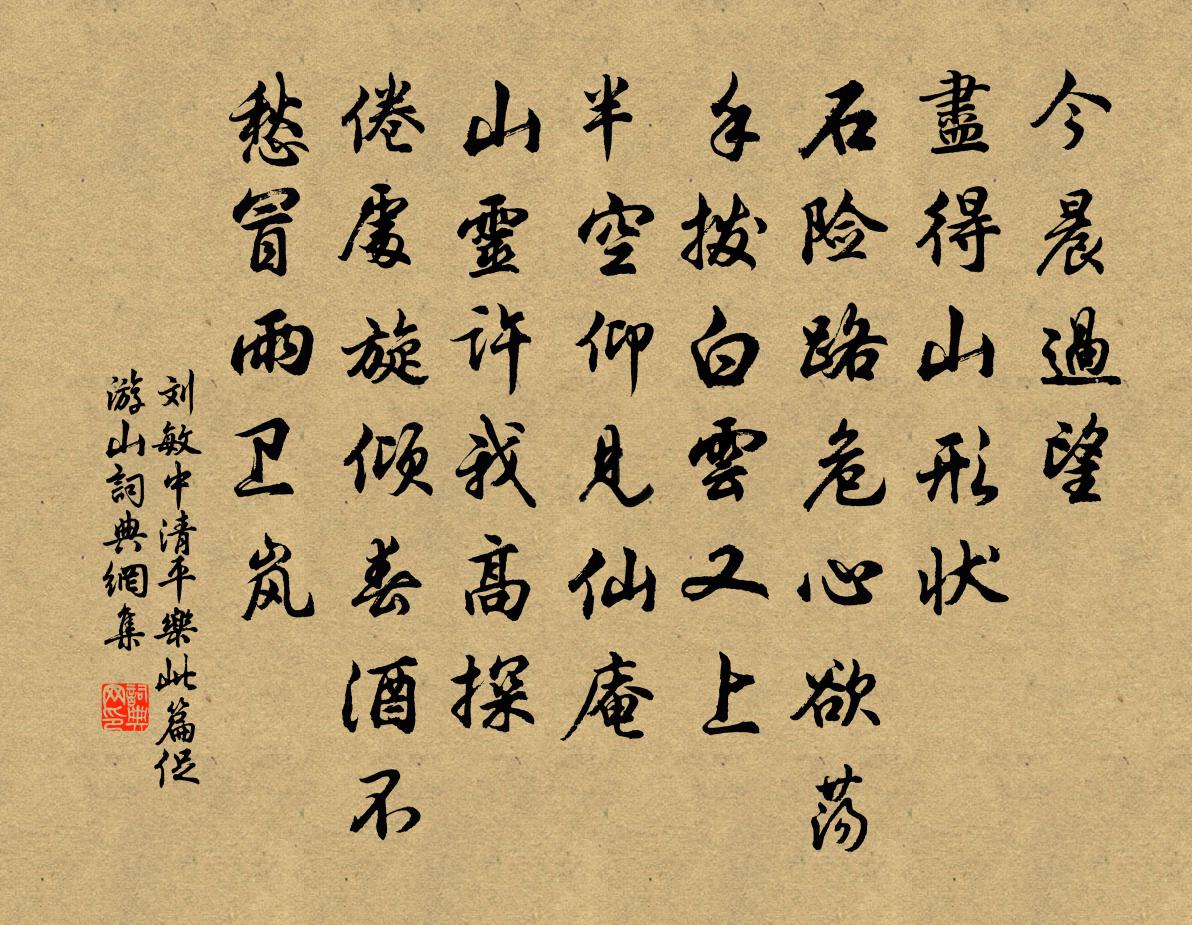 今晨過望
盡得山形状
石险路危心欲荡
手拨白雲又上
半空仰见仙庵
山靈許我高探
倦處旋倾春酒不
愁冒雨卫岚
刘敏中清平樂此篇促
游山詞典網集
詞典网印